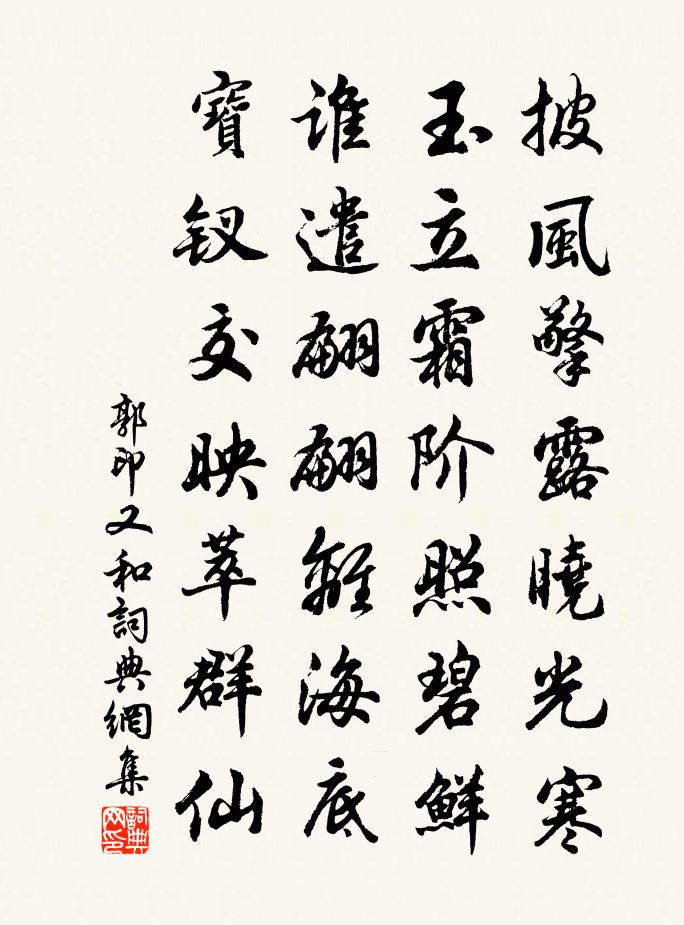 披風擎露曉光寒
玉立霜阶照碧鮮
谁遣翩翩離海底
寶钗交映萃群仙
郭印又和詞典網集
詞典網印